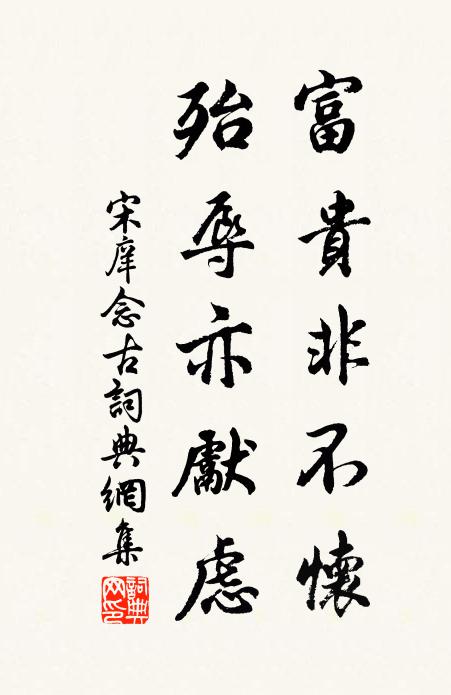 富貴非不懷
殆辱亦獻慮
宋庠念古詞典網集
詞典網印